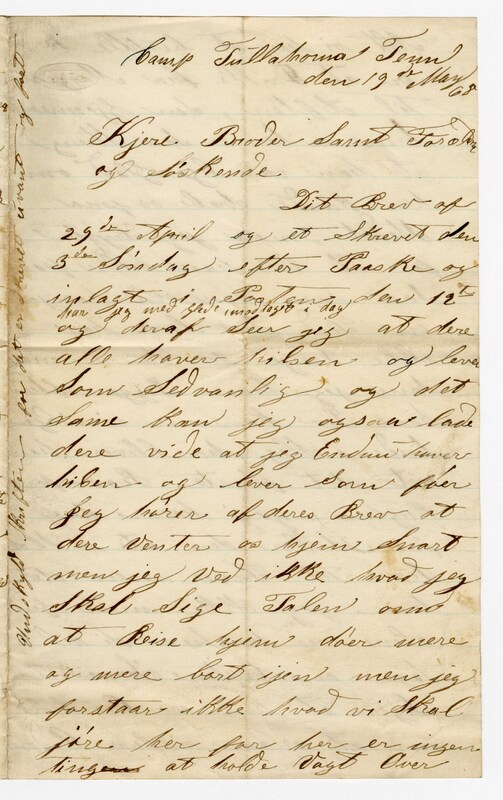 Camp Tullahoma Tenn
den 19de May
Kjere Broder Samt Forældre
og Søskende
Dit Brev af
29de April og et Skrevet den
3die Søndag efter Paaske og
inlagt i Posten den 12te
har jeg med glede imodtaget i dag
og deraf Seer jeg at dere
alle haver hilsen og lever
Som Sedvanlig og det
Same kan jeg ogsaa lade
dere vide at jeg Endnu haver
hilsen og lever Som før
Jeg hører af deres Brev at
dere Venter os hjem Snart
men jeg Ved ikke hvad jeg
Skal Sige Talen om
at Reise hjem døer mere
og mere bort ijen men jeg
forstaar ikke hvad vi Skal
jøre her for her er ingen
tingen at holde Vagt Over
Undskyld Skriften for det er Skrevet og fort